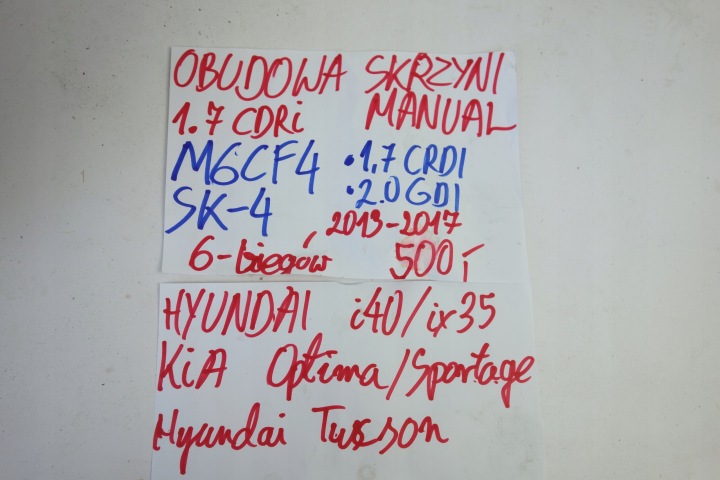 OBUDOWA SKRZYNI
1.7 CDRi MANUAL
M6CF4 • 1,7 CRDI
SK-4 • 2.0 GDI
2013-2017
6-biegów 500,-
HYUNDAI i40/ix35
KiA Optima/Sportage
Hyundai Tucson